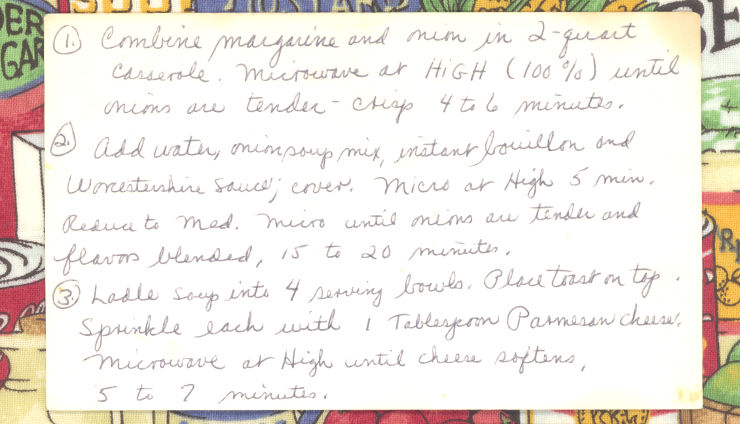 ① Combine margarine and onion in 2-quart
casserole. Microwave at HIGH (100%) until
onions are tender-crisp 4 to 6 minutes.
② add water, onion soup mix, instant bouillon and
Worcestershire Sauce; cover. Micro at High 5 min.
Reduce to Med. micro until onions are tender and
flavors blended, 15 to 20 minutes.
③ Ladle soup into 4 serving bowls. Place toast on top.
Sprinkle each with 1 Tablespoon Parmesan cheese.
Microwave at High until cheese softens,
5 to 7 minutes.